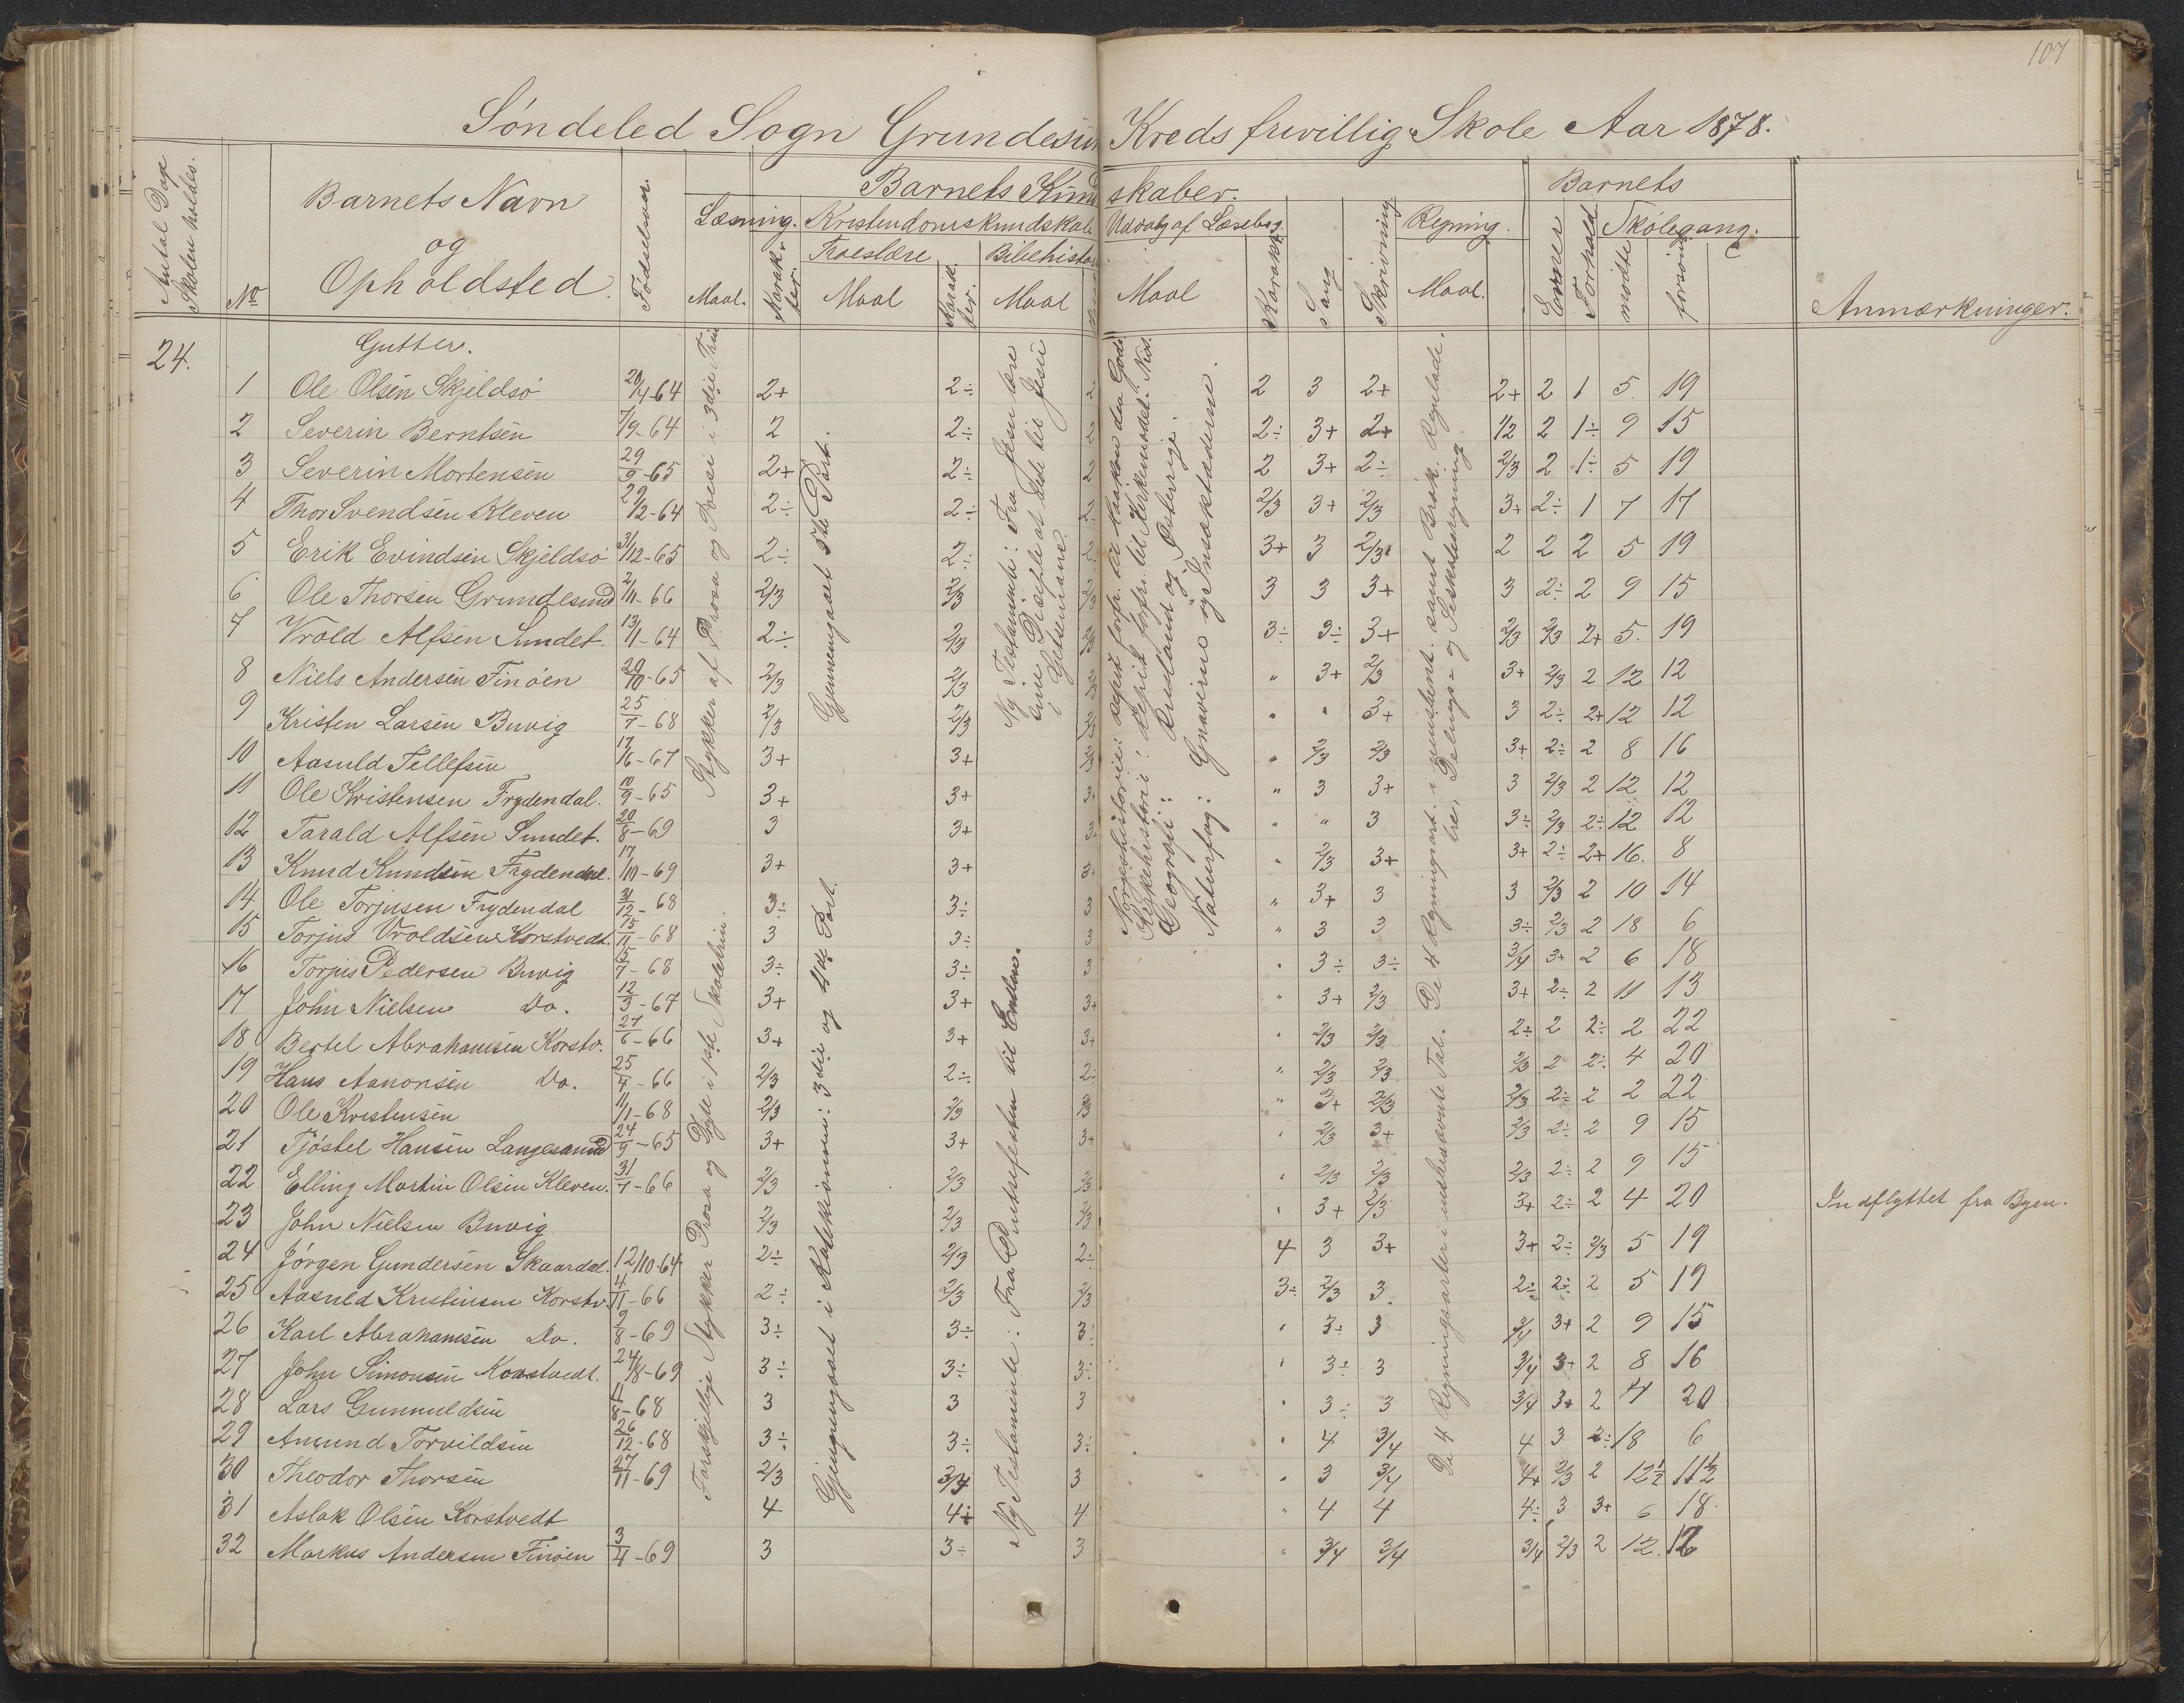 107
Søndeled Sogn Grundesun Kreds frivillig Skole Aar 1878.
Antal Dage Skolen holdes.
No
Barnets Navn og Opholdsted.
Fødselsaar.
Barnets Kundskaber.
Læsning. Kristendomskundskab Udvalg af Læsebog. Regning.
Troeslære Bibelhistor
Maal. Karakter. Maal Karakter. Maal
Maal Karakt Sang Skrivning Maal.
Barnets
Evner Forhold Skolegang.
mødte forsømt
Anmærkninger.
24.
Gutter.
1 Ole Olsen Skjeldsø 20/4-64 2+ 2÷ 2 3 2+ 2+ 2 1 5 19
2 Severin Berntsen 7/9-64 2 2÷ 2 2÷ 3+ 2+ 1/2 2 1÷ 9 15
3 Severin Mortensen 29/9-65 2+ 2÷ 2 2 3+ 2÷ 2/3 2 1÷ 5 19
4 Thor Svendsen Kleven 29/12-64 2÷ 2÷ 2÷ 2/3 3+ 2/3 3+ 2÷ 1 7 17
5 Erik Evindsen Skjeldsø 31/12-65 2÷ 2÷ 2÷ 3+ 3 2/3 2 2 2 5 19
6 Ole Thorsen Grundesund 2/11-66 2/3 2/3 2/3 3 3 3+ 3 2÷ 2 9 15
7 Vrold Alfsen Sundet 13/11-64 2÷ 2/3 2/3 3÷ 3÷ 3+ 2/3 2/3 2+ 5. 19
8 Niels Andersen Finøen 29/10-65 2/3 2/3 2/3 " 3+ 2/3 3+ 2/3 2 12 12
9 Kristen Larsen Buvig 25/7-68 2/3 2/3 2/3 " " 3+ 3 2÷ 2+ 12 12
10 Aasuld Tellefsen 17/6-67 3+ 3+ 2/3 " 2/3 2/3 3+ 2÷ 2 8 16
11 Ole Kristensen Frydendal. 10/9-65 3+ 3+ 3+ " 3 3+ 3 2/3 2 12 12
12 Tarald Alfsen Sundet. 20/8-69 3 3+ 3+ " " 3 3÷ 2/3 2÷ 12 12
13 Knud Knudsen Frydendal. 17/10-69 3+ 3+ 3+ " 2/3 3+ 3+ 2÷ 2+ 16. 8
14 Ole Torjusen Frydendal 31/12-68 3÷ 3÷ 3 " 3+ 3 3 2/3 2 10 14
15 Torjus Vroldsen Korstvedt. 15/11-68 3 3÷ 3 " 3 3 3÷ 2/3 2 18 6
16 Torjus Pedersen Buvig 15/7-68 3÷ 3÷ 3 " 3÷ 3÷ 3/4 3+ 2 6 18
17 John Nielsen Do. 12/3-67 3+ 3+ 3+ " 3+ 2/3 3+ 2÷ 2 11 13
18 Bertel Abrahamsen Korstv. 27/6-66 3+ 3+ 3+ " 2/3 2/3 2÷ 2 2÷ 2 22
19 Hans Aanonsen Do. 25/4-66 2/3 2÷ 2÷ " 2/3 2/3 2/3 2 2÷ 4 20
20 Ole Kristensen 11/11-68 2/3 2/3 2/3 " 3+ 2/3 2/3 2÷ 2 2 22
21 Tjøstel Hansen Langesund 24/9-65 3+ 3+ 3+ " 2/3 3+ 2/3 2÷ 2 9 15
22 Elling Martin Olsen Kleven. 31/7-66 2/3 2/3 2/3 " 2/3 2/3 2/3 2÷ 2 9 15
23 John Nielsen Buvig 2/3 2/3 2/3 " 3+ 2/3 3+ 2÷ 2 4 20 Indflyttet fra Byen.
24 Jørgen Gundersen Skaardal. 12/10-64 2÷ 2/3 2÷ 4 3 3+ 3+ 2÷ 2/3 5 19
25 Aasuld Kristensen Korstv. 4/11-66 2÷ 2/3 2/3 3÷ 2/3 3. 2÷ 2÷ 2 5 19
26 Karl Abrahamsen Do. 9/8-69 3÷ 3÷ 3÷ " 3÷ 3 3/4 3+ 2 9 15
27 John Simonsen Korstvedt. 24/8-69 3÷ 3÷ 3÷ " 3÷ 3 3/4 3+ 2 8 16
28 Lars Gunnuldsen 11/8-68 3 3 3 " 3÷ 3 3/4 3+ 2 4 20
29 Amund Torvildsen 26/12-68 3÷ 3÷ 3÷ " 4 3/4 4 3 2÷ 18 6
30 Theodor Thorsen 27/11-69 2/3 3/4 3 " 3 3/4 4+ 2/3 2 12½ 11½
31 Aslak Olsen Korstvedt 4 4÷ 4 " 4 4 4÷ 3 3+ 6 18
32 Markus Andersen Finøen 3/4-69 3 3÷ 3 " 3/4 3/4 3/4 2/3 2 12. 12
Stykker af Prosa og Poesi i 3die Trin
Forskjellige Stykker Prosa og Digte i 1ste Skoletrin.
Gjennemgaaet 5te Part.
Gjennemgaaet i Katekismen: 3die og 4de Part.
Ny Testamente: Fra Jesu lære sine Disciple at bede til Jesu i Getsemane.
Ny Testamente: Fra Pintsefesten til Enden.
Norgeshistorie: repit. forfr. til Haakon den Gode
Kirkehistori: repit. forfr. til Kirkemødet i Nic.
Geografi: Rusland og Østerrige.
Naturfag: Gnaverne og Insektæderne.
De 4 Regningsart. i ubenævnt samt Brøk. Reguladetre, Delings- og Selskabsregning.
De 4 Regningsarter i ubenævnte Tal.